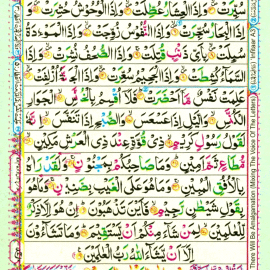 سُيِّرَتْ وَإِذَا الْعِشَارُ عُطِّلَتْ وَإِذَا الْوُحُوشُ حُشِرَتْ وَ
إِذَا الْبِحَارُ سُجِّرَتْ وَإِذَا النُّفُوسُ زُوِّجَتْ وَإِذَا الْمَوْءُدَةُ
سُئِلَتْ بِأَيِّ ذَنْبٍ قُتِلَتْ وَإِذَا الصُّحُفُ نُشِرَتْ وَإِذَا
السَّمَاءُ كُشِطَتْ وَإِذَا الْجَحِيمُ سُعِّرَتْ وَإِذَا الْجَنَّةُ أُزْلِفَتْ
عَلِمَتْ نَفْسٌ مَّا أَحْضَرَتْ فَلَا أُقْسِمُ بِالْخُنَّسِ الْجَوَارِ
الْكُنَّسِ وَاللَّيْلِ إِذَا عَسْعَسَ وَالصُّبْحِ إِذَا تَنَفَّسَ إِنَّهُ
لَقَوْلُ رَسُولٍ كَرِيمٍ ذِي قُوَّةٍ عِنْدَ ذِي الْعَرْشِ مَكِينٍ
مُّطَاعٍ ثَمَّ أَمِينٍ وَمَا صَاحِبُكُمْ بِمَجْنُونٍ وَلَقَدْ رَاٰهُ
بِالْأُفُقِ الْمُبِينِ وَمَا هُوَ عَلَى الْغَيْبِ بِضَنِينٍ وَمَا هُوَ
بِقَوْلِ شَيْطٰنٍ رَّجِيمٍ فَأَيْنَ تَذْهَبُونَ إِنْ هُوَ إِلَّا ذِكْرٌ
لِّلْعٰلَمِينَ لِمَنْ شَاءَ مِنْكُمْ أَنْ يَّسْتَقِيمَ وَمَا تَشَاءُونَ
إِلَّا أَنْ يَّشَاءَ اللّٰهُ رَبُّ الْعٰلَمِينَ